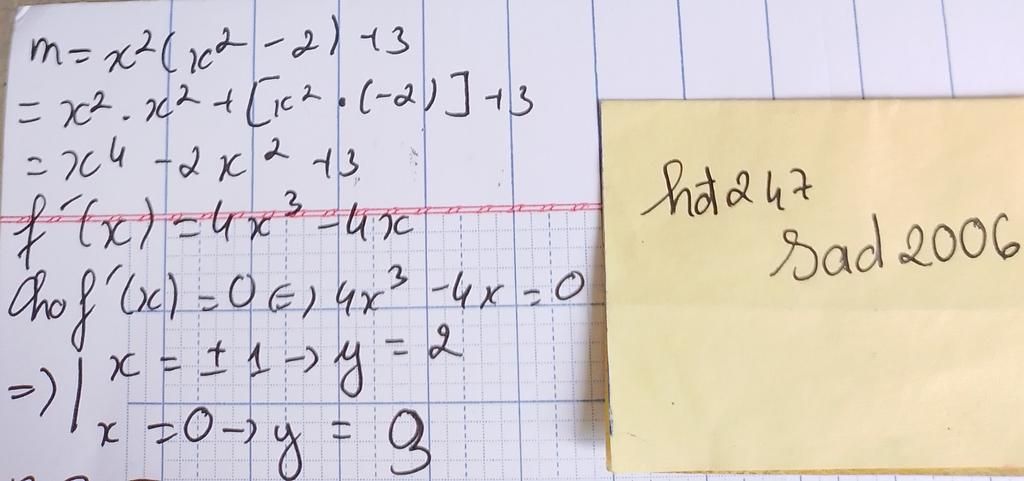 m = x²(x² - 2) + 3
= x² . x² + [x² . (-2)] + 3
= x⁴ - 2x² + 3
f'(x) = 4x³ - 4x
Cho f'(x) = 0 ⇔ 4x³ - 4x = 0
=> | x = ± 1 → y = 2
x = 0 → y = 3
hot247
sad2006